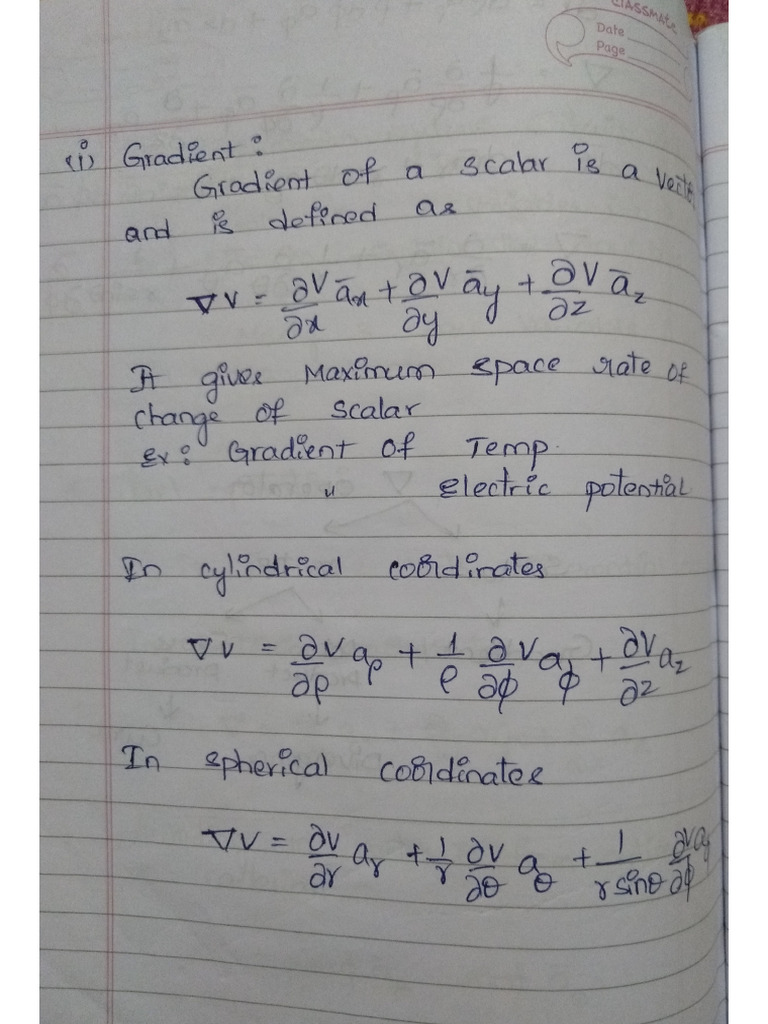 classmate
Date
Page
(i) Gradient :
Gradient of a scalar is a vecto
and is defined as
∇V = ∂V/∂x āx + ∂V/∂y āy + ∂V/∂z āz
It gives Maximum space rate of
change of scalar
Ex: Gradient of Temp.
" electric potential
In cylindrical coordinates
∇V = ∂V/∂ρ aρ + 1/ρ ∂V/∂ϕ aϕ + ∂V/∂z az
In spherical coordinates
∇V = ∂V/∂r ar + 1/r ∂V/∂θ aθ + 1/r sinθ ∂V/∂ϕ aϕ